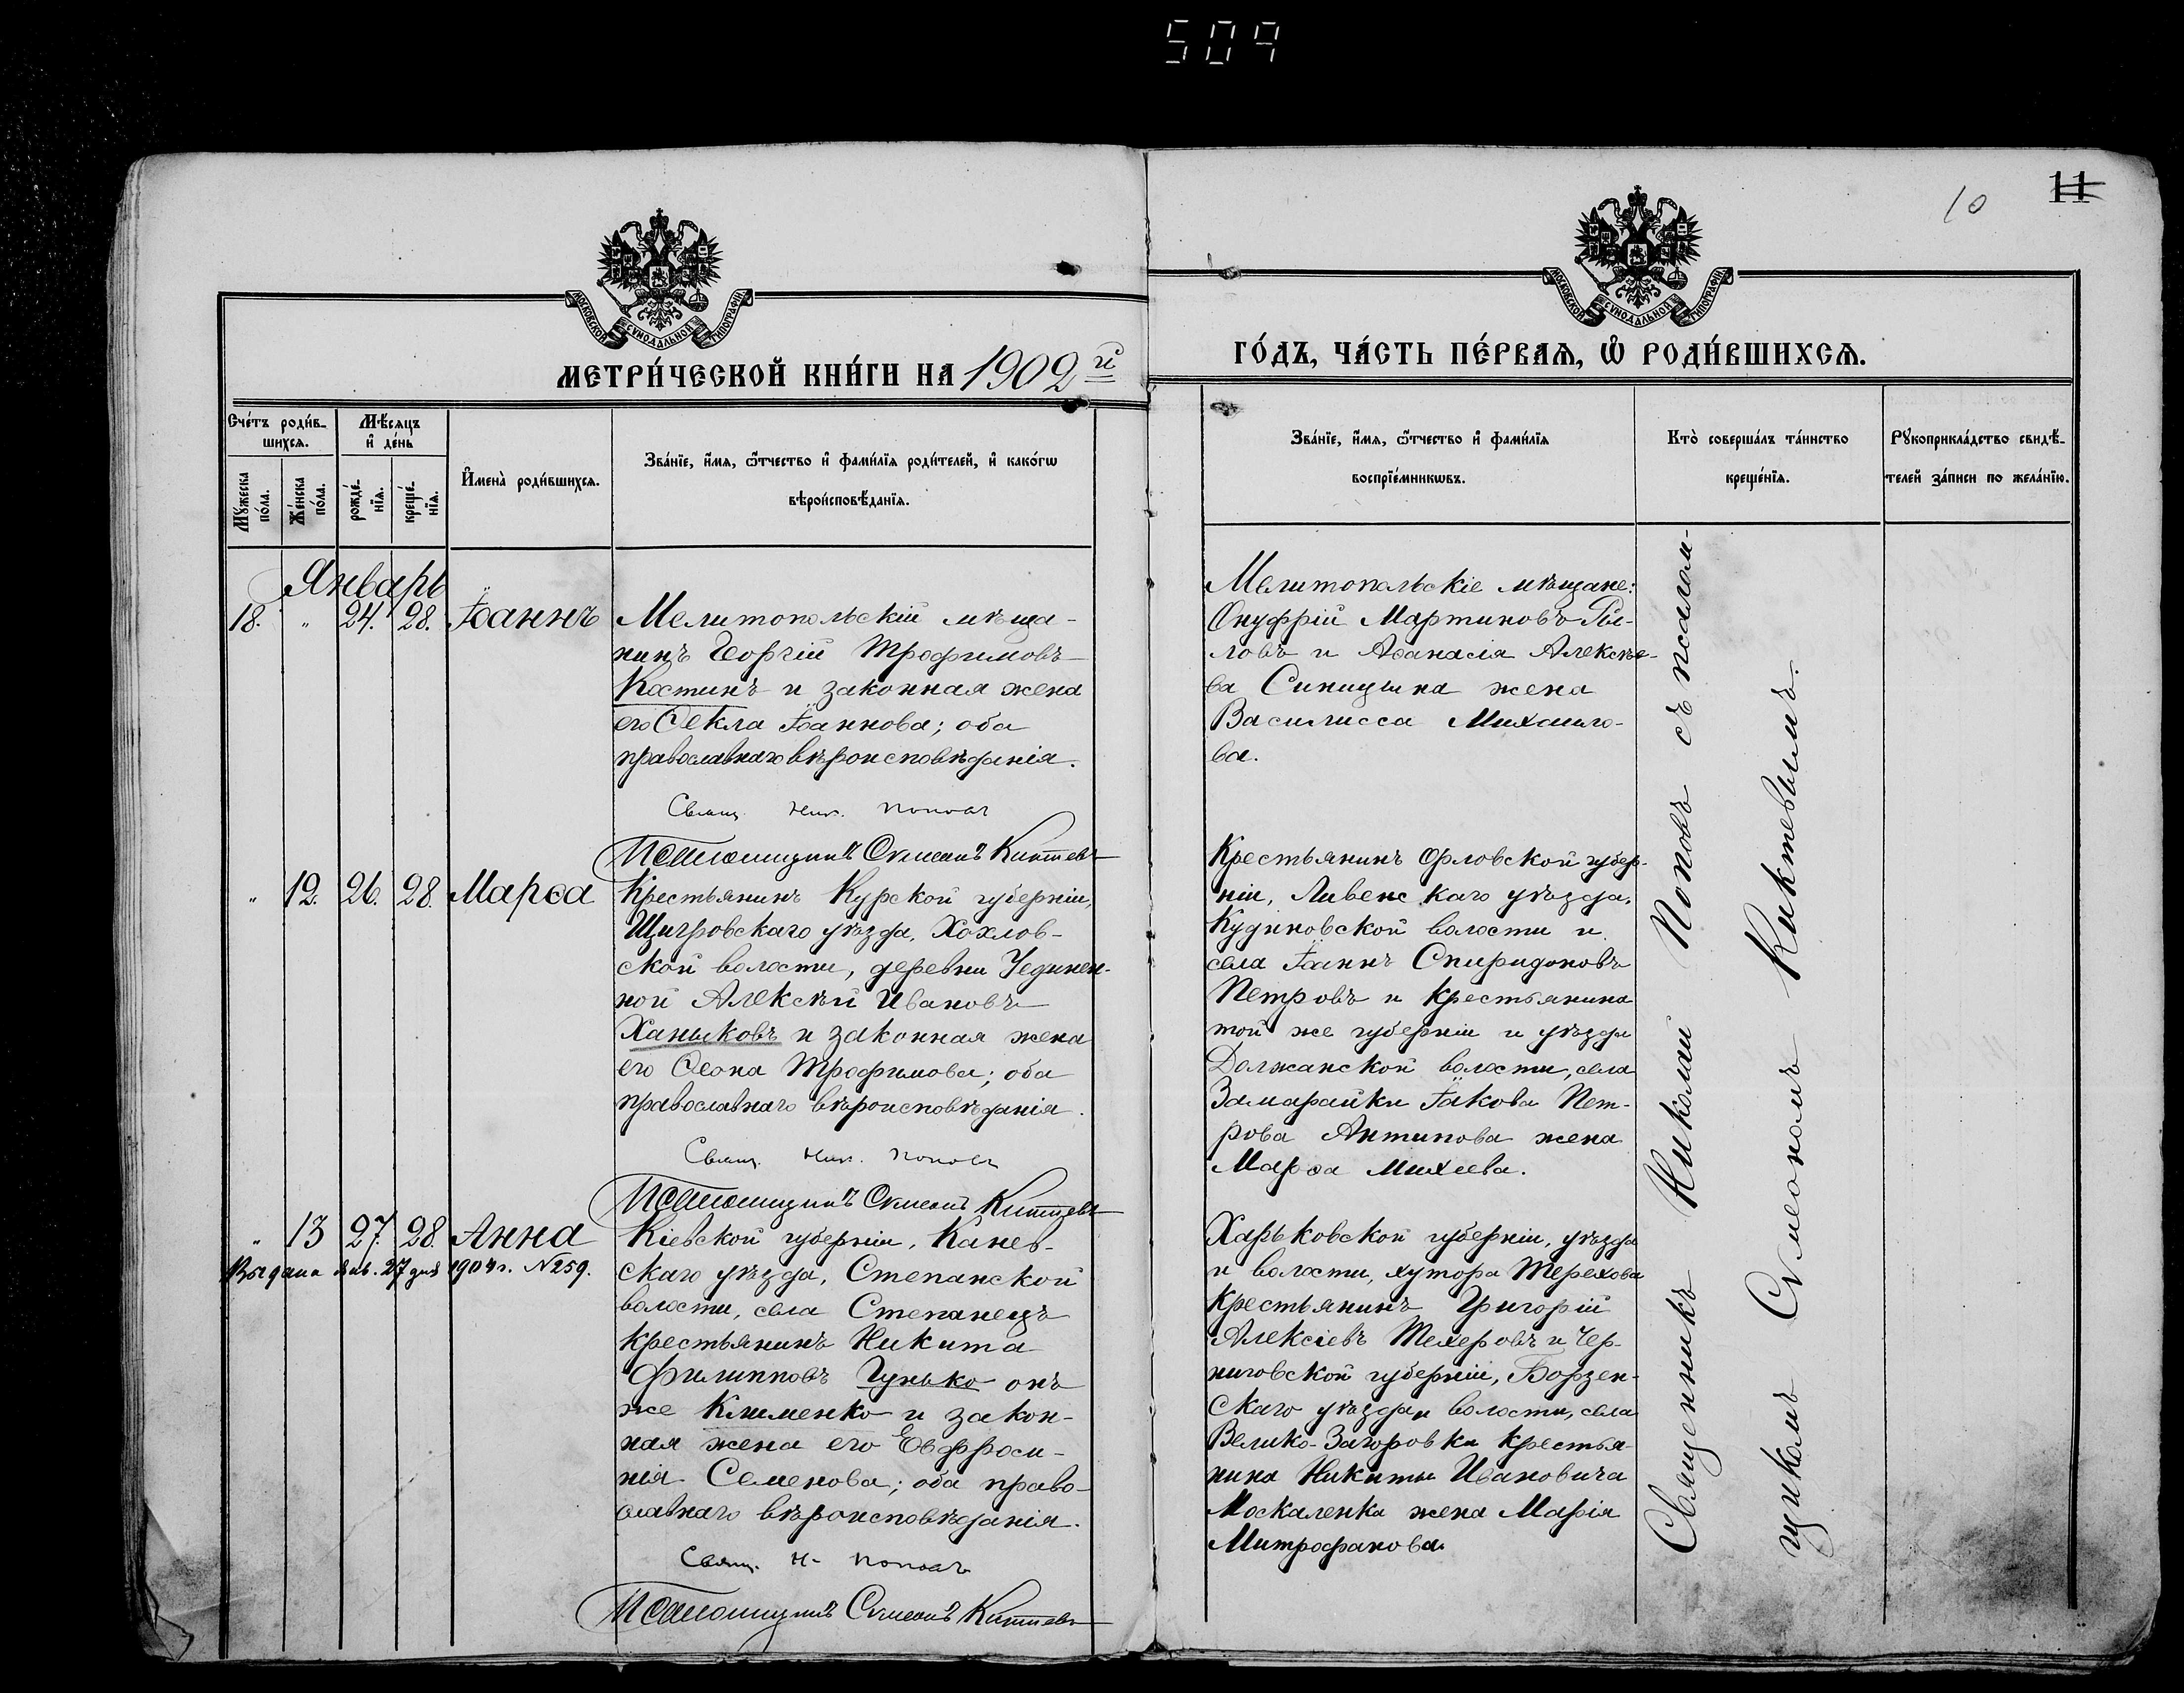 509
10
11
МОСКОВСКОЙ СѴНОДАЛЬНОЙ ТИПОГРАФІИ
МОСКОВСКОЙ СѴНОДАЛЬНОЙ ТИПОГРАФІИ
МЕТРИ́ЧЕСКОЙ КНИ́ГИ НА 1902й
ГО́ДЪ, ЧА́СТЬ ПЕ́РВАѦ, Ѡ҆ РОДИ́ВШИХСѦ.
Сче́тъ роди́в-
шихсѧ.
Мѣ́сѧцъ
и҆ де́нь
Мꙋ́жеска
по́ла.
Же́нска
по́ла.
рожде́-
нїѧ.
креще́-
нїѧ.
И҆мена̀ роди́вшихсѧ.
Зва́нїе, и҆́мѧ, ѻ҆́тчество и҆ фами́лїѧ роди́телей, и҆ како́гѡ
вѣроисповѣ́данїѧ.
Зва́нїе, и҆́мѧ, ѻ҆́тчество и҆ фами́лїѧ
воспрїе́мникѡвъ.
Кто̀ соверша́лъ та́инство
креще́нїѧ.
Рꙋкоприкла́дство свидѣ́-
телей за́писи по жела́нїю.
Январь
18. " 24. 28. Іоаннъ
Мелитопольскій мѣща-
нинъ Георгій Трофимовъ
Костинъ и законная жена
его Ѳекла Іоаннова; оба
православнаго вѣроисповѣданія.
Свящ. Ник. Поповъ
Псаломщикъ Сѵмеонъ Киктевъ
Мелитопольскіе мѣщане:
Онуфрій Мартиновъ
и Аѳанасія Алексѣе-
ва Синицына жена
Василисса Михаило-
ва.
" 12. 26. 28. Марѳа
Крестьянинъ Курской губерніи,
Щигровскаго уѣзда, Хохлов-
ской волости, деревни Уединен-
ной Алексѣй Ивановъ
Ханыковъ и законная жена
его Ѳеона Трофимова; оба
православнаго вѣроисповѣданія.
Свящ. Ник. Поповъ
Псаломщикъ Сѵмеонъ Киктевъ
Крестьянинъ Орловской губер-
ніи, Ливенскаго уѣзда,
Кудиновской волости и
села Іоаннъ Спиридоновъ
Петровъ и крестьянина
той же губерніи и уѣзда
Должанской волости, села
Замарайки Іакова Пет-
рова Антипова жена
Марѳа Михеева.
" 13 27. 28. Анна
Выдана янв. 27 дня 1904 г. №259.
Кіевской губерніи, Канев-
скаго уѣзда, Степанской
волости, села Степанецъ
крестьянинъ Никита
Филипповъ Гунько онъ
же Клименко и закон-
ная жена его Евфроси-
нія Семенова; оба право-
славнаго вѣроисповѣданія.
Свящ. Н. Поповъ
Псаломщикъ Сѵмеонъ Киктевъ
Харьковской губерніи, уѣзда
и волости, хутора Терехова
крестьянинъ Григорій
Алексіевъ и Чер-
ниговской губерніи, Борзен-
скаго уѣзда и волости, села
Велико-Загоровки крестья-
нина Никиты Ивановича
Москаленка жена Марія
Митрофанова.
Священникъ Николай Поповъ съ псалом-
щикомъ Сѵмеономъ Киктевымъ.